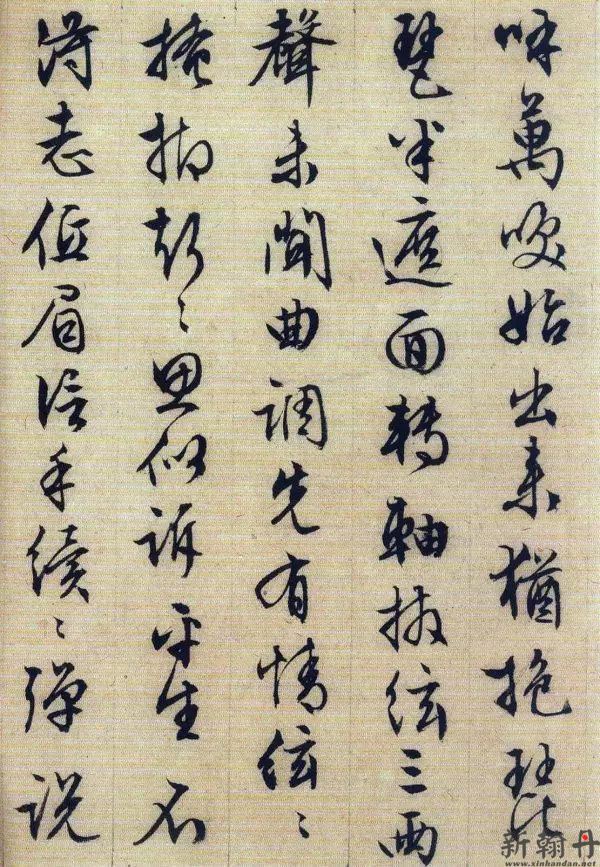 呼萬喚始出来猶抱琵
琶半遮面轉軸撥絃三两
聲未聞曲調先有情絃〻
掩抑聲〻思似訴平生不
得志低眉信手續〻彈説
新翰丹
www.xinhandan.net